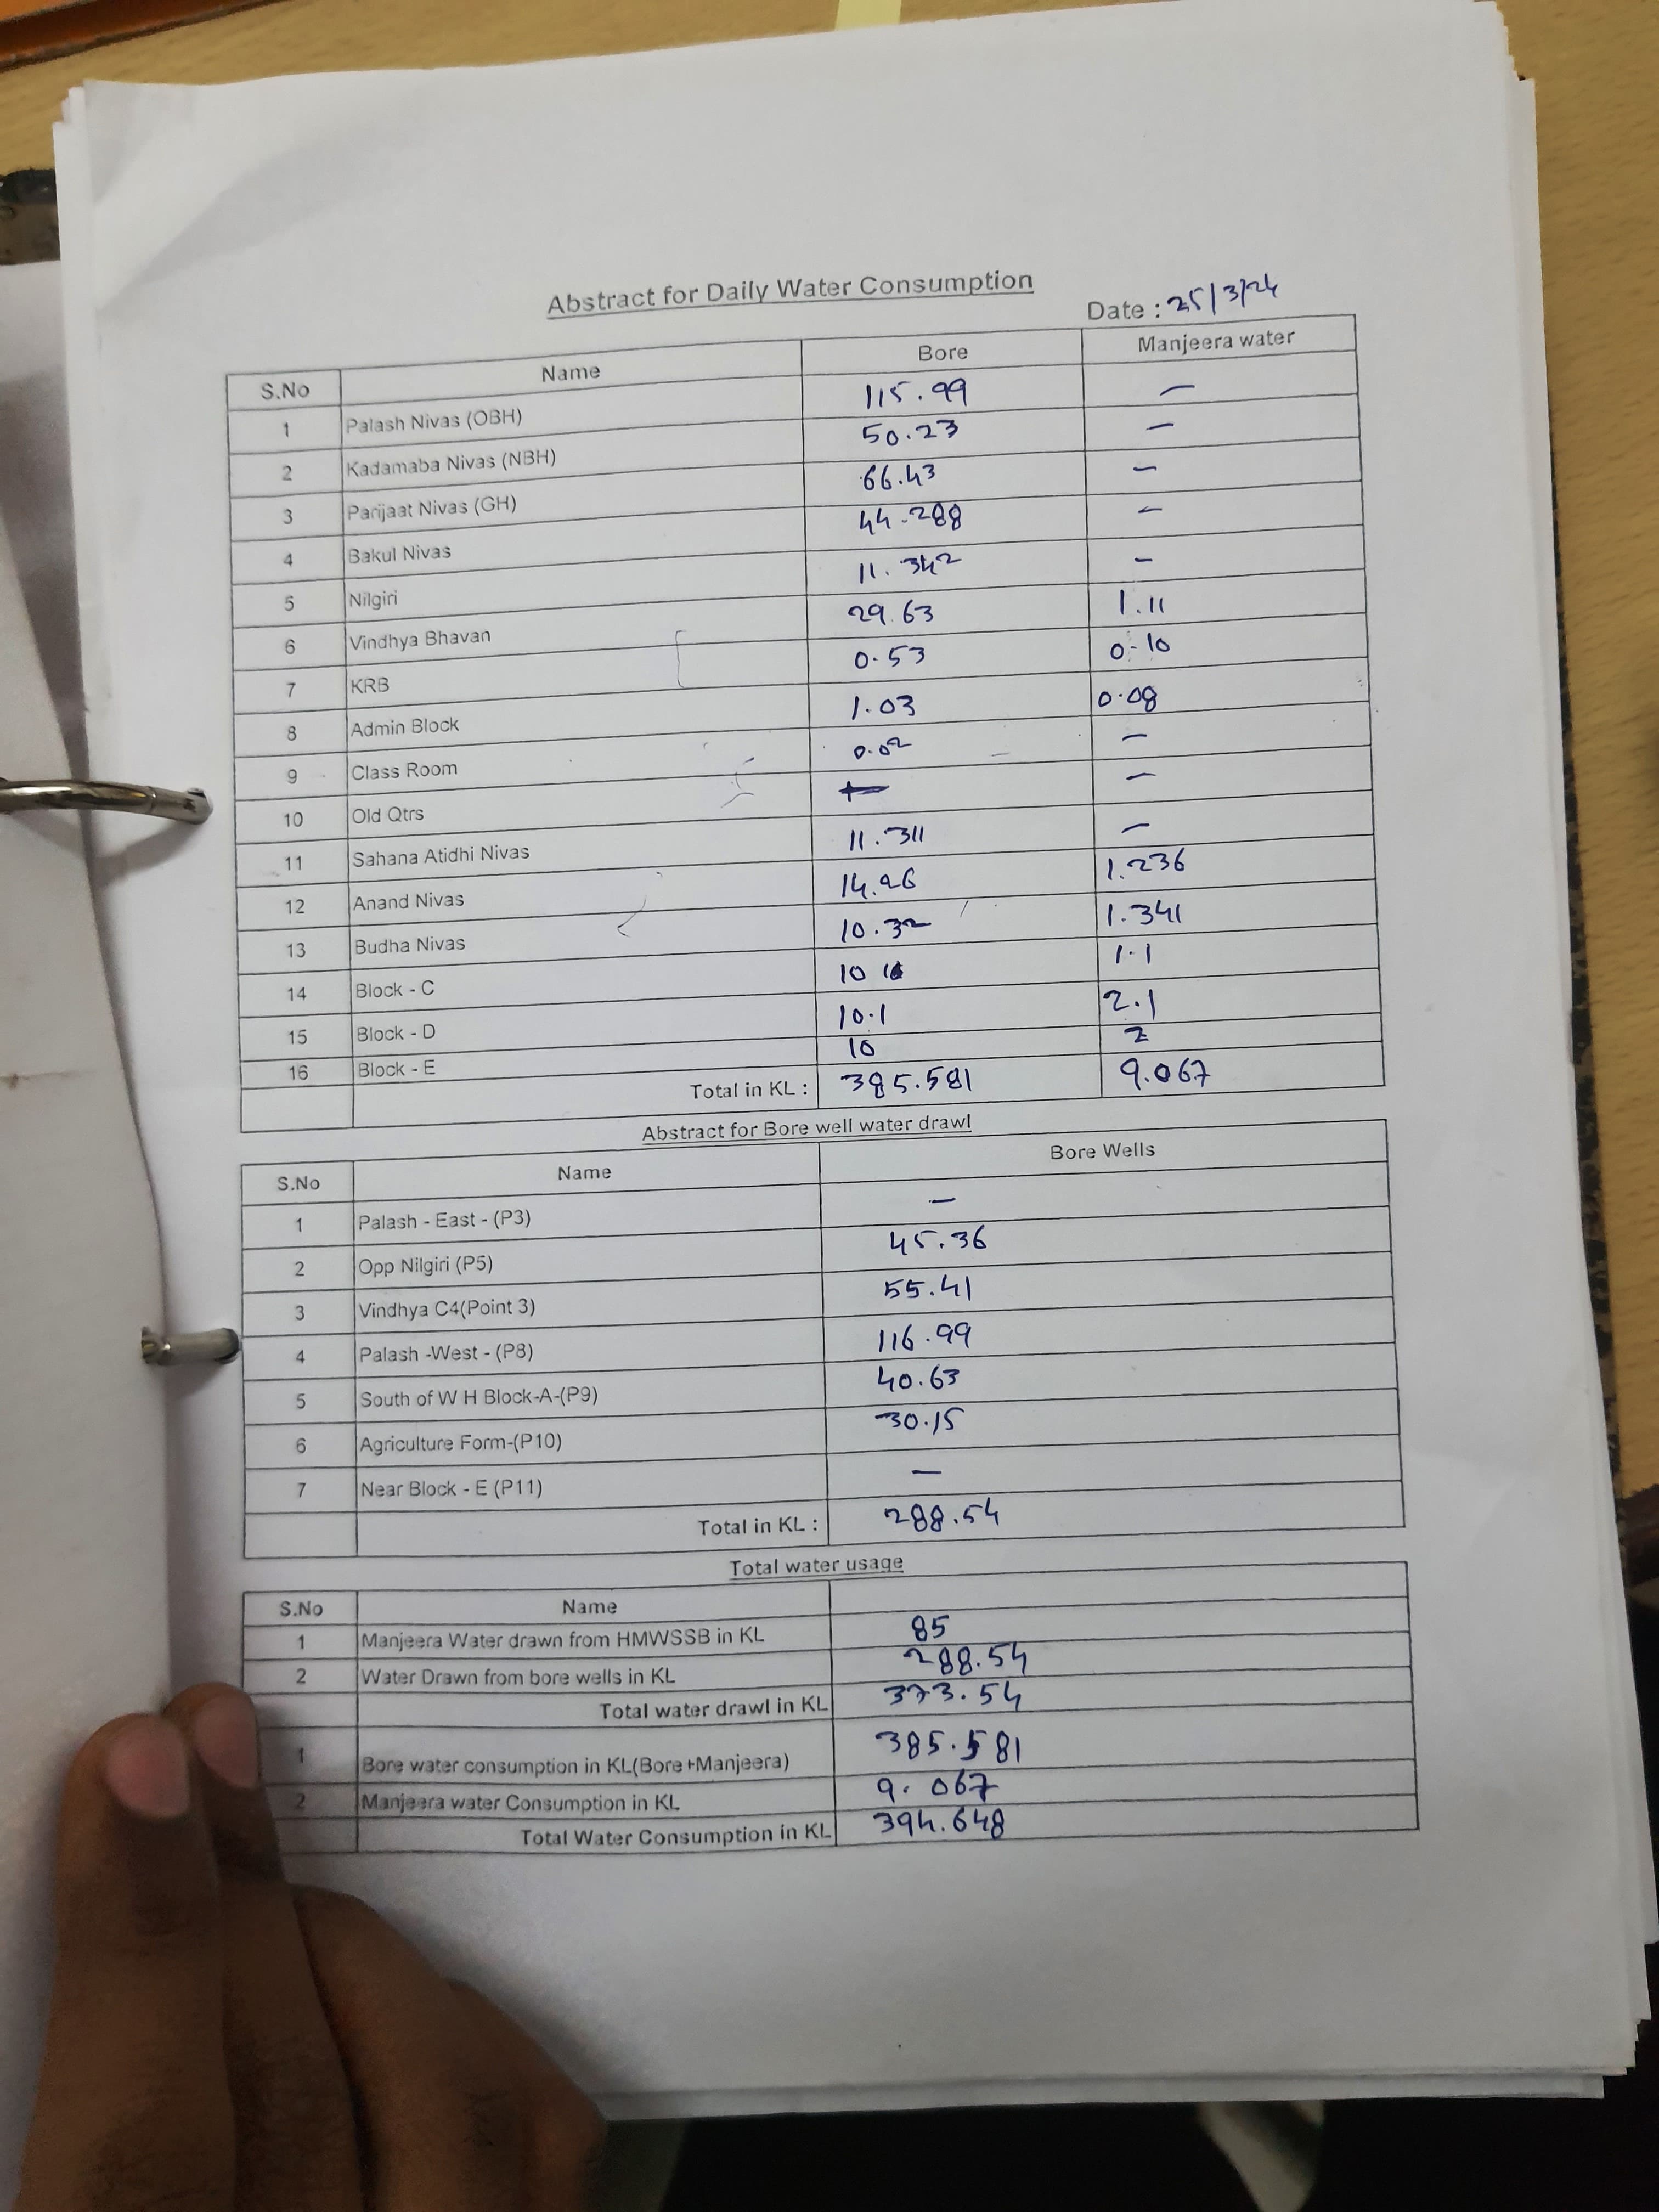 Abstract for Daily Water Consumption
Date : 25/3/24
S.No Name Bore Manjeera water
1 Palash Nivas (OBH) 115.99 —
2 Kadamaba Nivas (NBH) 50.23 —
3 Parijaat Nivas (GH) 66.43 —
4 Bakul Nivas 44.288 —
5 Nilgiri 11.342 —
6 Vindhya Bhavan 29.63 1.11
7 KRB 0.53 0.10
8 Admin Block 1.03 0.08
9 Class Room 0.02 —
10 Old Qtrs — —
11 Sahana Atidhi Nivas 11.311 —
12 Anand Nivas 14.26 1.236
13 Budha Nivas 10.32 1.341
14 Block - C 10 1.1
15 Block - D 10.1 2.1
16 Block - E 10 2
Total in KL : 385.581 9.067
Abstract for Bore well water drawl
S.No Name Bore Wells
1 Palash - East - (P3) —
2 Opp Nilgiri (P5) 45.36
3 Vindhya C4(Point 3) 55.41
4 Palash -West - (P8) 116.99
5 South of W H Block-A-(P9) 40.63
6 Agriculture Form-(P10) 30.15
7 Near Block - E (P11) —
Total in KL : 288.54
Total water usage
S.No Name
1 Manjeera Water drawn from HMWSSB in KL 85
2 Water Drawn from bore wells in KL 288.54
Total water drawl in KL 373.54
1 Bore water consumption in KL(Bore+Manjeera) 385.581
2 Manjeera water Consumption in KL 9.067
Total Water Consumption in KL 394.648